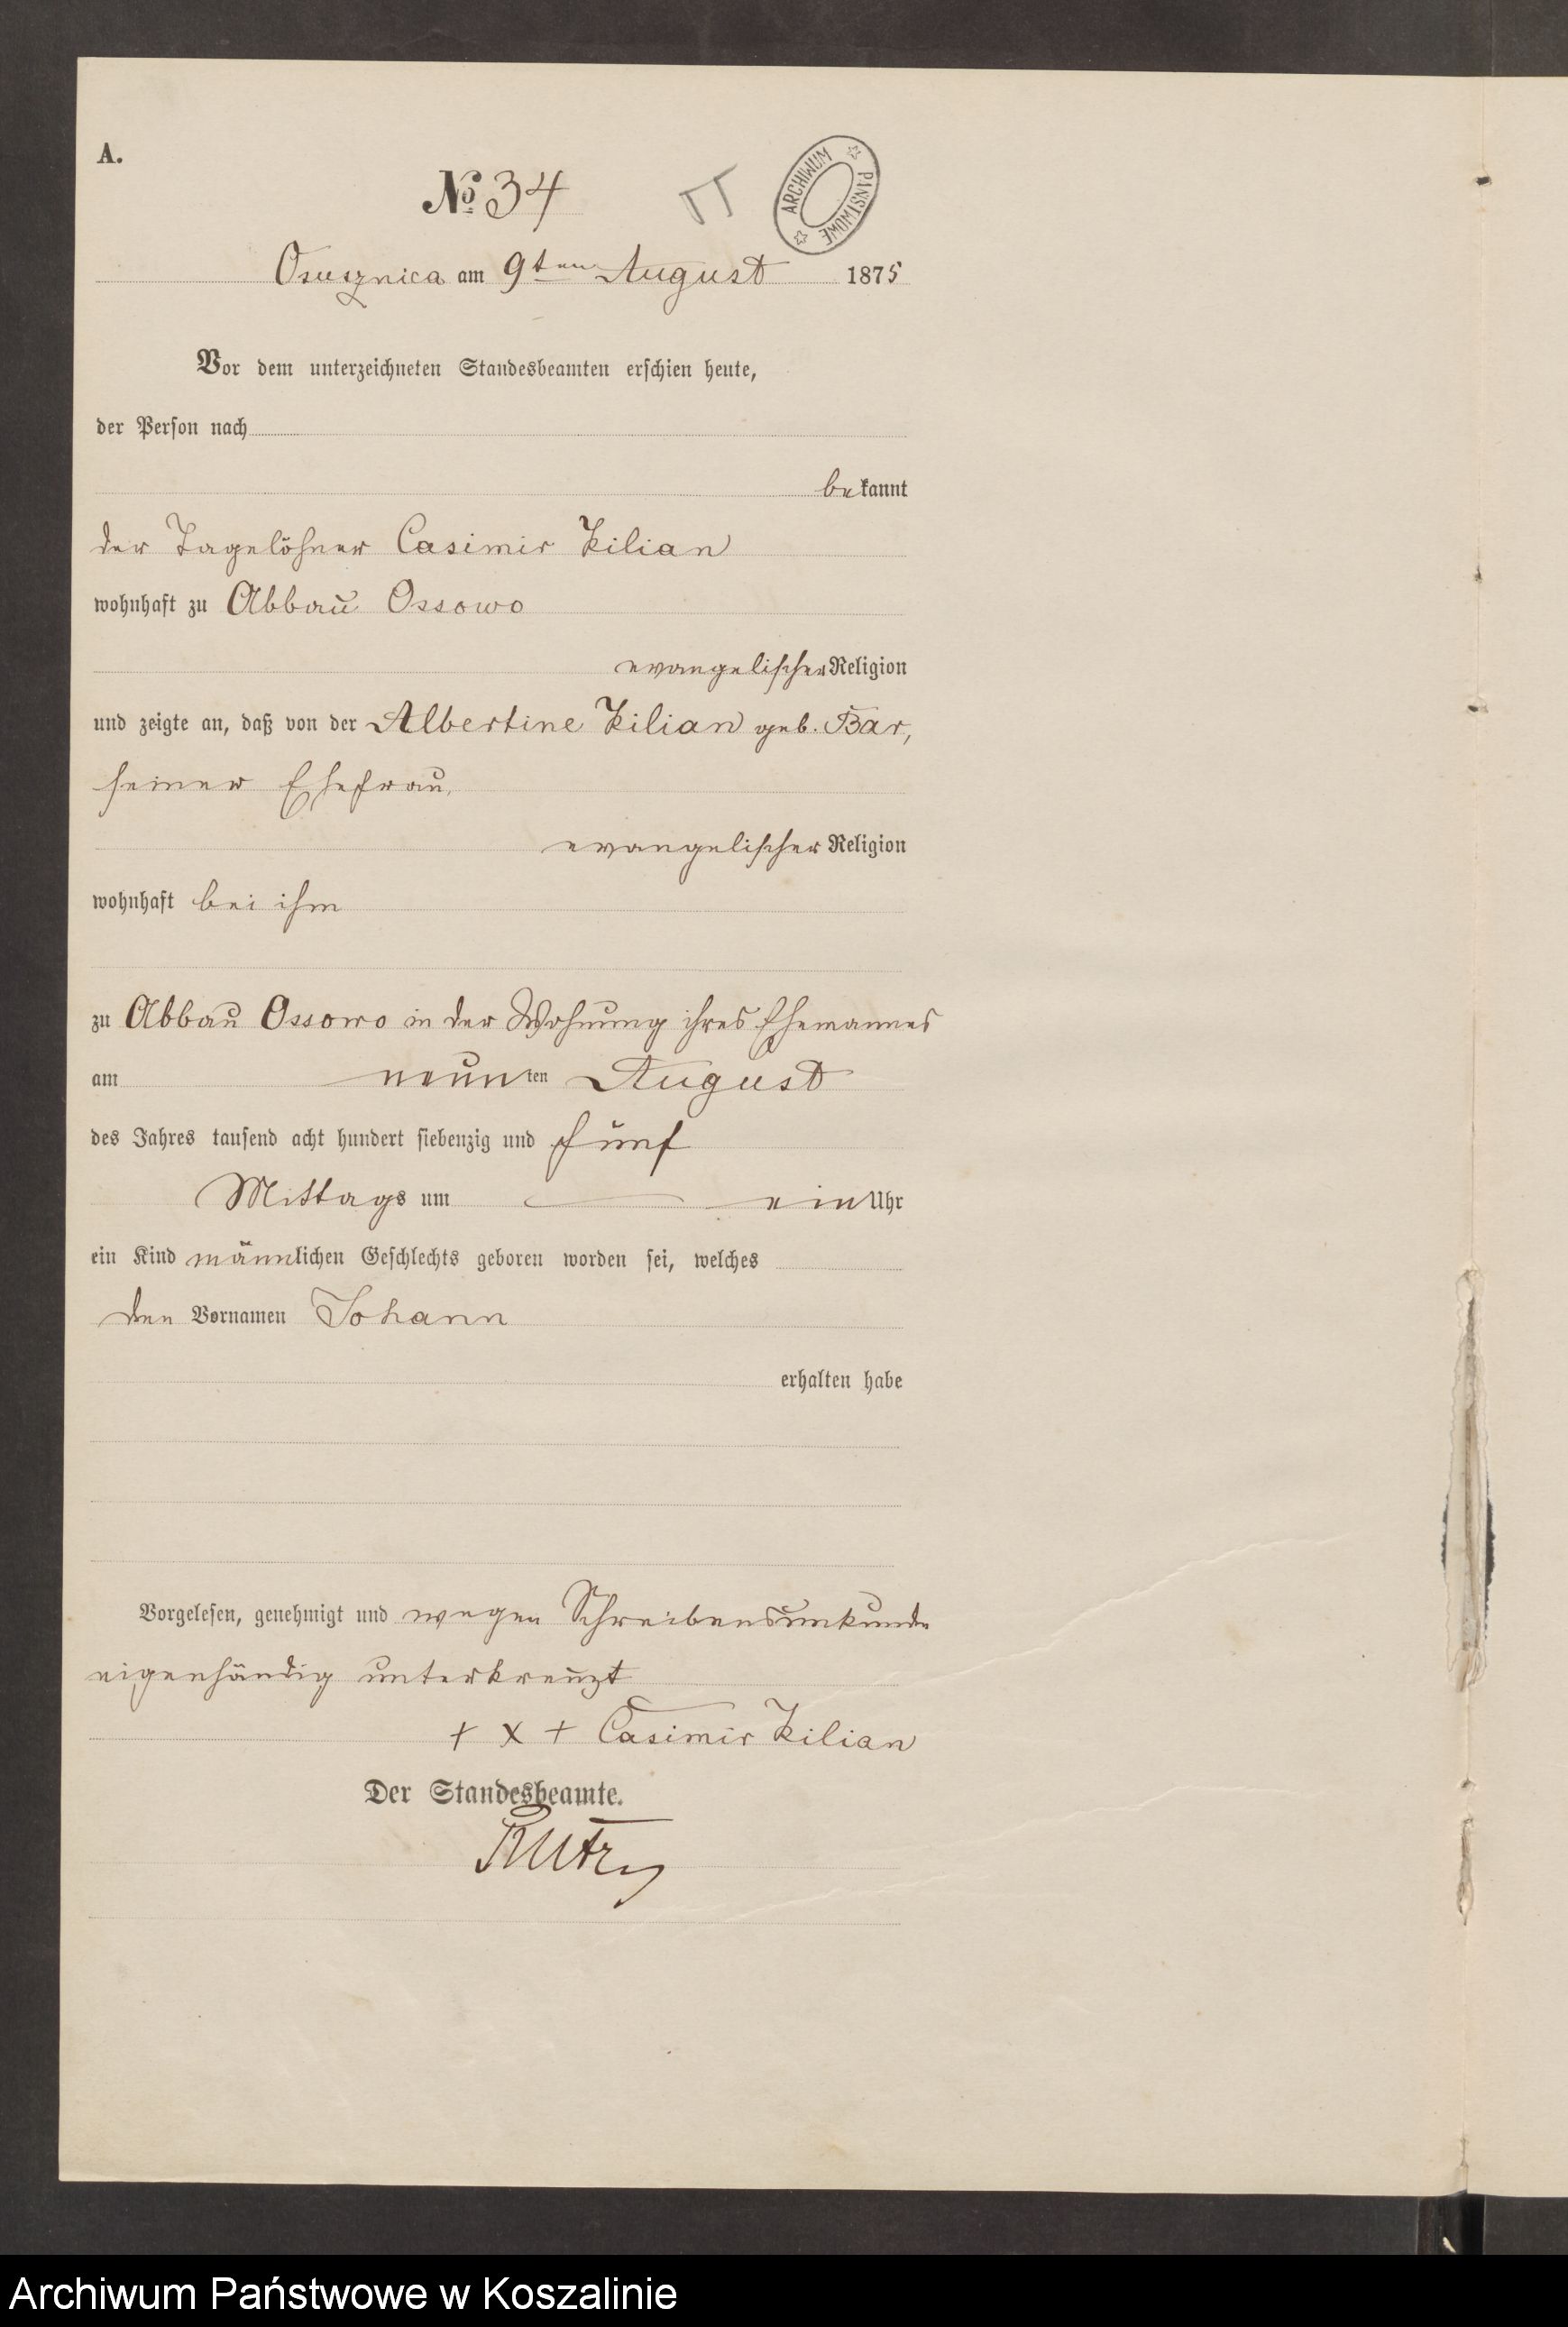 A.
ARCHIWUM PAŃSTWOWE
No 34
Osusznica am 9ten August 1875
Vor dem unterzeichneten Standesbeamten erschien heute,
der Person nach
bekannt
der Tagelöhner Casimir Kilian
wohnhaft zu Abbau Ossowo
evangelischer Religion
und zeigte an, daß von der Albertine Kilian geb. Bar,
seiner Ehefrau,
evangelischer Religion
wohnhaft bei ihm
zu Abbau Ossowo in der Wohnung ihres Ehemannes
am neunten August
des Jahres tausend acht hundert siebenzig und fünf
Mittags um ein Uhr
ein Kind männlichen Geschlechts geboren worden sei, welches
den Vornamen Johann
erhalten habe
Vorgelesen, genehmigt und wegen Schreibensunkunde
eigenhändig unterkreuzt
+ x + Casimir Kilian
Der Standesbeamte.
Archiwum Państwowe w Koszalinie